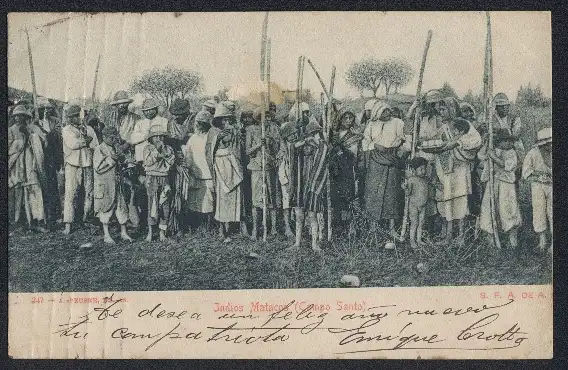 247 - J. PEUSER,
Indios Matacos (Campo Santo)
S. F. A. DE A.
Te desea un feliz año nuevo
Tu compatriota Enrique Crotto